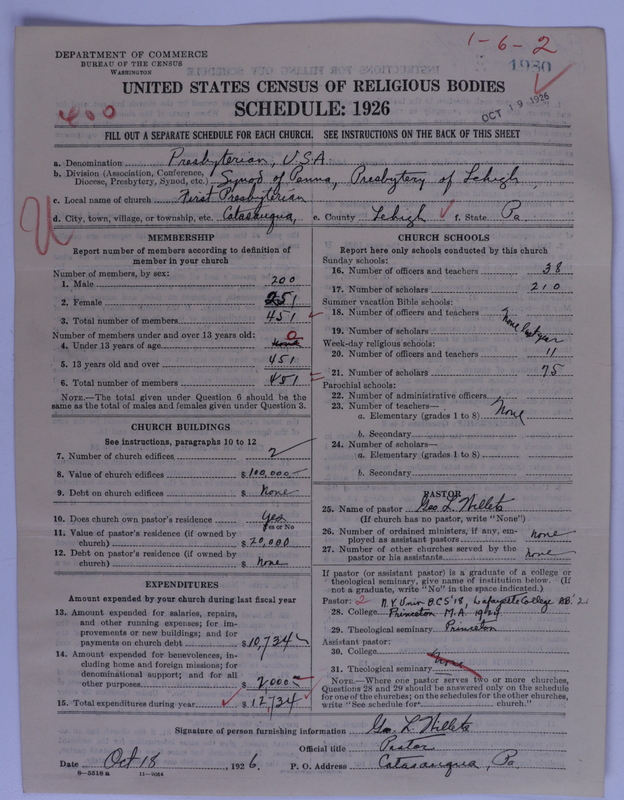 1-6-2
DEPARTMENT OF COMMERCE
BUREAU OF THE CENSUS
WASHINGTON
1930
UNITED STATES CENSUS OF RELIGIOUS BODIES
SCHEDULE: 1926
OCT 19 1926
400
FILL OUT A SEPARATE SCHEDULE FOR EACH CHURCH. SEE INSTRUCTIONS ON THE BACK OF THIS SHEET
a. Denomination Presbyterian, U.S.A.
b. Division (Association, Conference, Diocese, Presbytery, Synod, etc.) Synod of Penna, Presbytery of Lehigh
c. Local name of church First Presbyterian
d. City, town, village, or township, etc. Catasauqua, e. County Lehigh f. State Pa.
MEMBERSHIP
Report number of members according to definition of
member in your church
Number of members, by sex:
1. Male 200
2. Female 251
3. Total number of members 451
Number of members under and over 13 years old:
4. Under 13 years of age None 0
5. 13 years old and over 451
6. Total number of members 451
NOTE.—The total given under Question 6 should be
same as the total of males and females given under Question 3.
CHURCH BUILDINGS
See instructions, paragraphs 10 to 12
7. Number of church edifices 2
8. Value of church edifices $100,000
9. Debt on church edifices $ None
10. Does church own pastor's residence Yes
Yes or No
11. Value of pastor's residence (if owned by
church) $20,000
12. Debt on pastor's residence (if owned by
church) $ None
EXPENDITURES
Amount expended by your church during last fiscal year
13. Amount expended for salaries, repairs,
and other running expenses; for im-
provements or new buildings; and for
payments on church debt $10,734
14. Amount expended for benevolences, in-
cluding home and foreign missions; for
denominational support; and for all
other purposes $2000
15. Total expenditures during year $12,734
CHURCH SCHOOLS
Report here only schools conducted by this church
Sunday schools:
16. Number of officers and teachers 38
17. Number of scholars 210
Summer vacation Bible schools:
18. Number of officers and teachers
19. Number of scholars None last year
Week-day religious schools:
20. Number of officers and teachers 11
21. Number of scholars 75
Parochial schools:
22. Number of administrative officers
23. Number of teachers—
a. Elementary (grades 1 to 8) None
b. Secondary
24. Number of scholars—
a. Elementary (grades 1 to 8)
b. Secondary
PASTOR
25. Name of pastor Geo. L. Willets
(If church has no pastor, write "None")
26. Number of ordained ministers, if any, em-
ployed as assistant pastors None
27. Number of other churches served by the
pastor or his assistants None
If pastor (or assistant pastor) is a graduate of a college or
theological seminary, give name of institution below. (If
not a graduate, write "No" in the space indicated.)
Pastor: 2 N.Y. Univ. B.C.S '18, Lafayette College AB. '21
28. College Princeton M.A. 1924
29. Theological seminary Princeton
Assistant pastor:
30. College
31. Theological seminary None
NOTE.—Where one pastor serves two or more churches,
Questions 28 and 29 should be answered only on the schedule
for one of the churches; on the schedules for the other churches,
write "See schedule for church."
Signature of person furnishing information Geo. L. Willets
Official title Pastor
Date Oct 18, 1926. P. O. Address Catasauqua, Pa.
8—5518a 11—9064